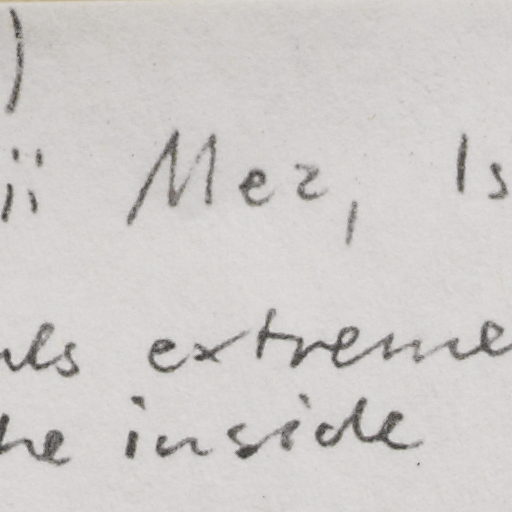 )
ii Mez, Is
els extreme
he inside